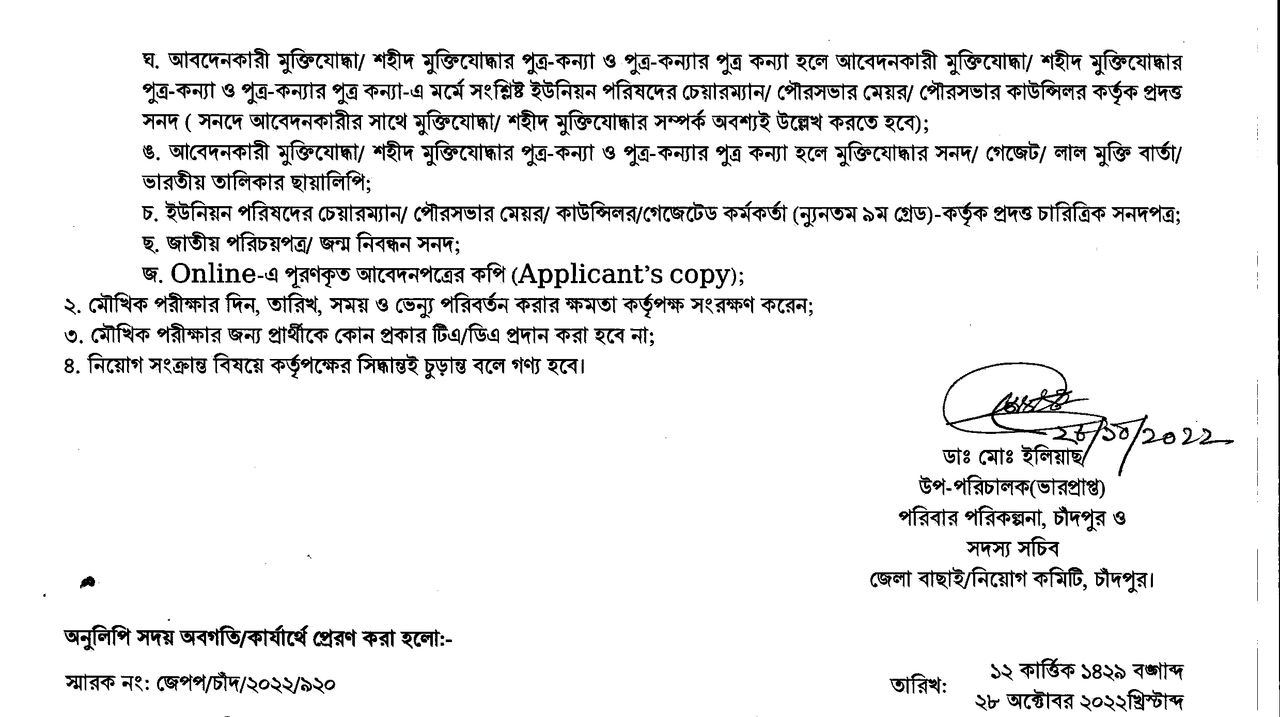 ঘ. আবদেনকারী মুক্তিযোদ্ধা/ শহীদ মুক্তিযোদ্ধার পুত্র-কন্যা ও পুত্র-কন্যার পুত্র কন্যা হলে আবেদনকারী মুক্তিযোদ্ধা/ শহীদ মুক্তিযোদ্ধার
পুত্র-কন্যা ও পুত্র-কন্যার পুত্র কন্যা-এ মর্মে সংশ্লিষ্ট ইউনিয়ন পরিষদের চেয়ারম্যান/ পৌরসভার মেয়র/ পৌরসভার কাউন্সিলর কর্তৃক প্রদত্ত
সনদ ( সনদে আবেদনকারীর সাথে মুক্তিযোদ্ধা/ শহীদ মুক্তিযোদ্ধার সম্পর্ক অবশ্যই উল্লেখ করতে হবে);
ঙ. আবেদনকারী মুক্তিযোদ্ধা/ শহীদ মুক্তিযোদ্ধার পুত্র-কন্যা ও পুত্র-কন্যার পুত্র কন্যা হলে মুক্তিযোদ্ধার সনদ/ গেজেট/ লাল মুক্তি বার্তা/
ভারতীয় তালিকার ছায়ালিপি;
চ. ইউনিয়ন পরিষদের চেয়ারম্যান/ পৌরসভার মেয়র/ কাউন্সিলর/গেজেটেড কর্মকর্তা (ন্যুনতম ৯ম গ্রেড)-কর্তৃক প্রদত্ত চারিত্রিক সনদপত্র;
ছ. জাতীয় পরিচয়পত্র/ জন্ম নিবন্ধন সনদ;
জ. Online-এ পূরণকৃত আবেদনপত্রের কপি (Applicant's copy);
২. মৌখিক পরীক্ষার দিন, তারিখ, সময় ও ভেন্যু পরিবর্তন করার ক্ষমতা কর্তৃপক্ষ সংরক্ষণ করেন;
৩. মৌখিক পরীক্ষার জন্য প্রার্থীকে কোন প্রকার টিএ/ডিএ প্রদান করা হবে না;
৪. নিয়োগ সংক্রান্ত বিষয়ে কর্তৃপক্ষের সিদ্ধান্তই চুড়ান্ত বলে গণ্য হবে।
২৮/১০/২০২২
ডাঃ মোঃ ইলিয়াছ
উপ-পরিচালক(ভারপ্রাপ্ত)
পরিবার পরিকল্পনা, চাঁদপুর ও
সদস্য সচিব
জেলা বাছাই/নিয়োগ কমিটি, চাঁদপুর।
অনুলিপি সদয় অবগতি/কার্যার্থে প্রেরণ করা হলো:-
স্মারক নং: জেপপ/চাঁদ/২০২২/৯২০
তারিখ:
১২ কার্ত্তিক ১৪২৯ বঙ্গাব্দ
২৮ অক্টোবর ২০২২খ্রিস্টাব্দ